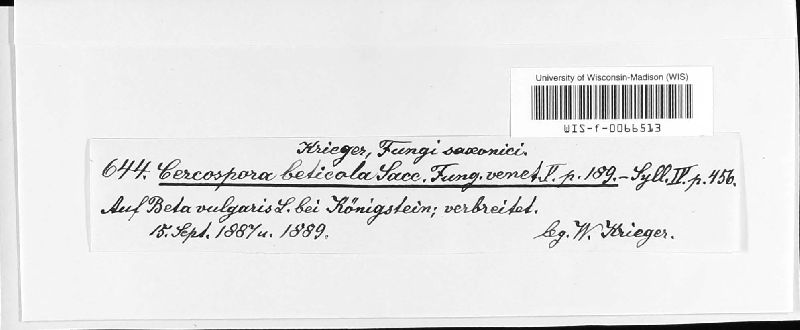 University of Wisconsin-Madison (WIS)
WIS-f-0066513
Krieger, Fungi saxonici.
644. Cercospora beticola Sacc. Fung. venet. V. p. 189. - Syll. IV. p. 456.
Auf Beta vulgaris L. bei Königstein; verbreitet.
15. Sept. 1887 u. 1889.
lg. W. Krieger.